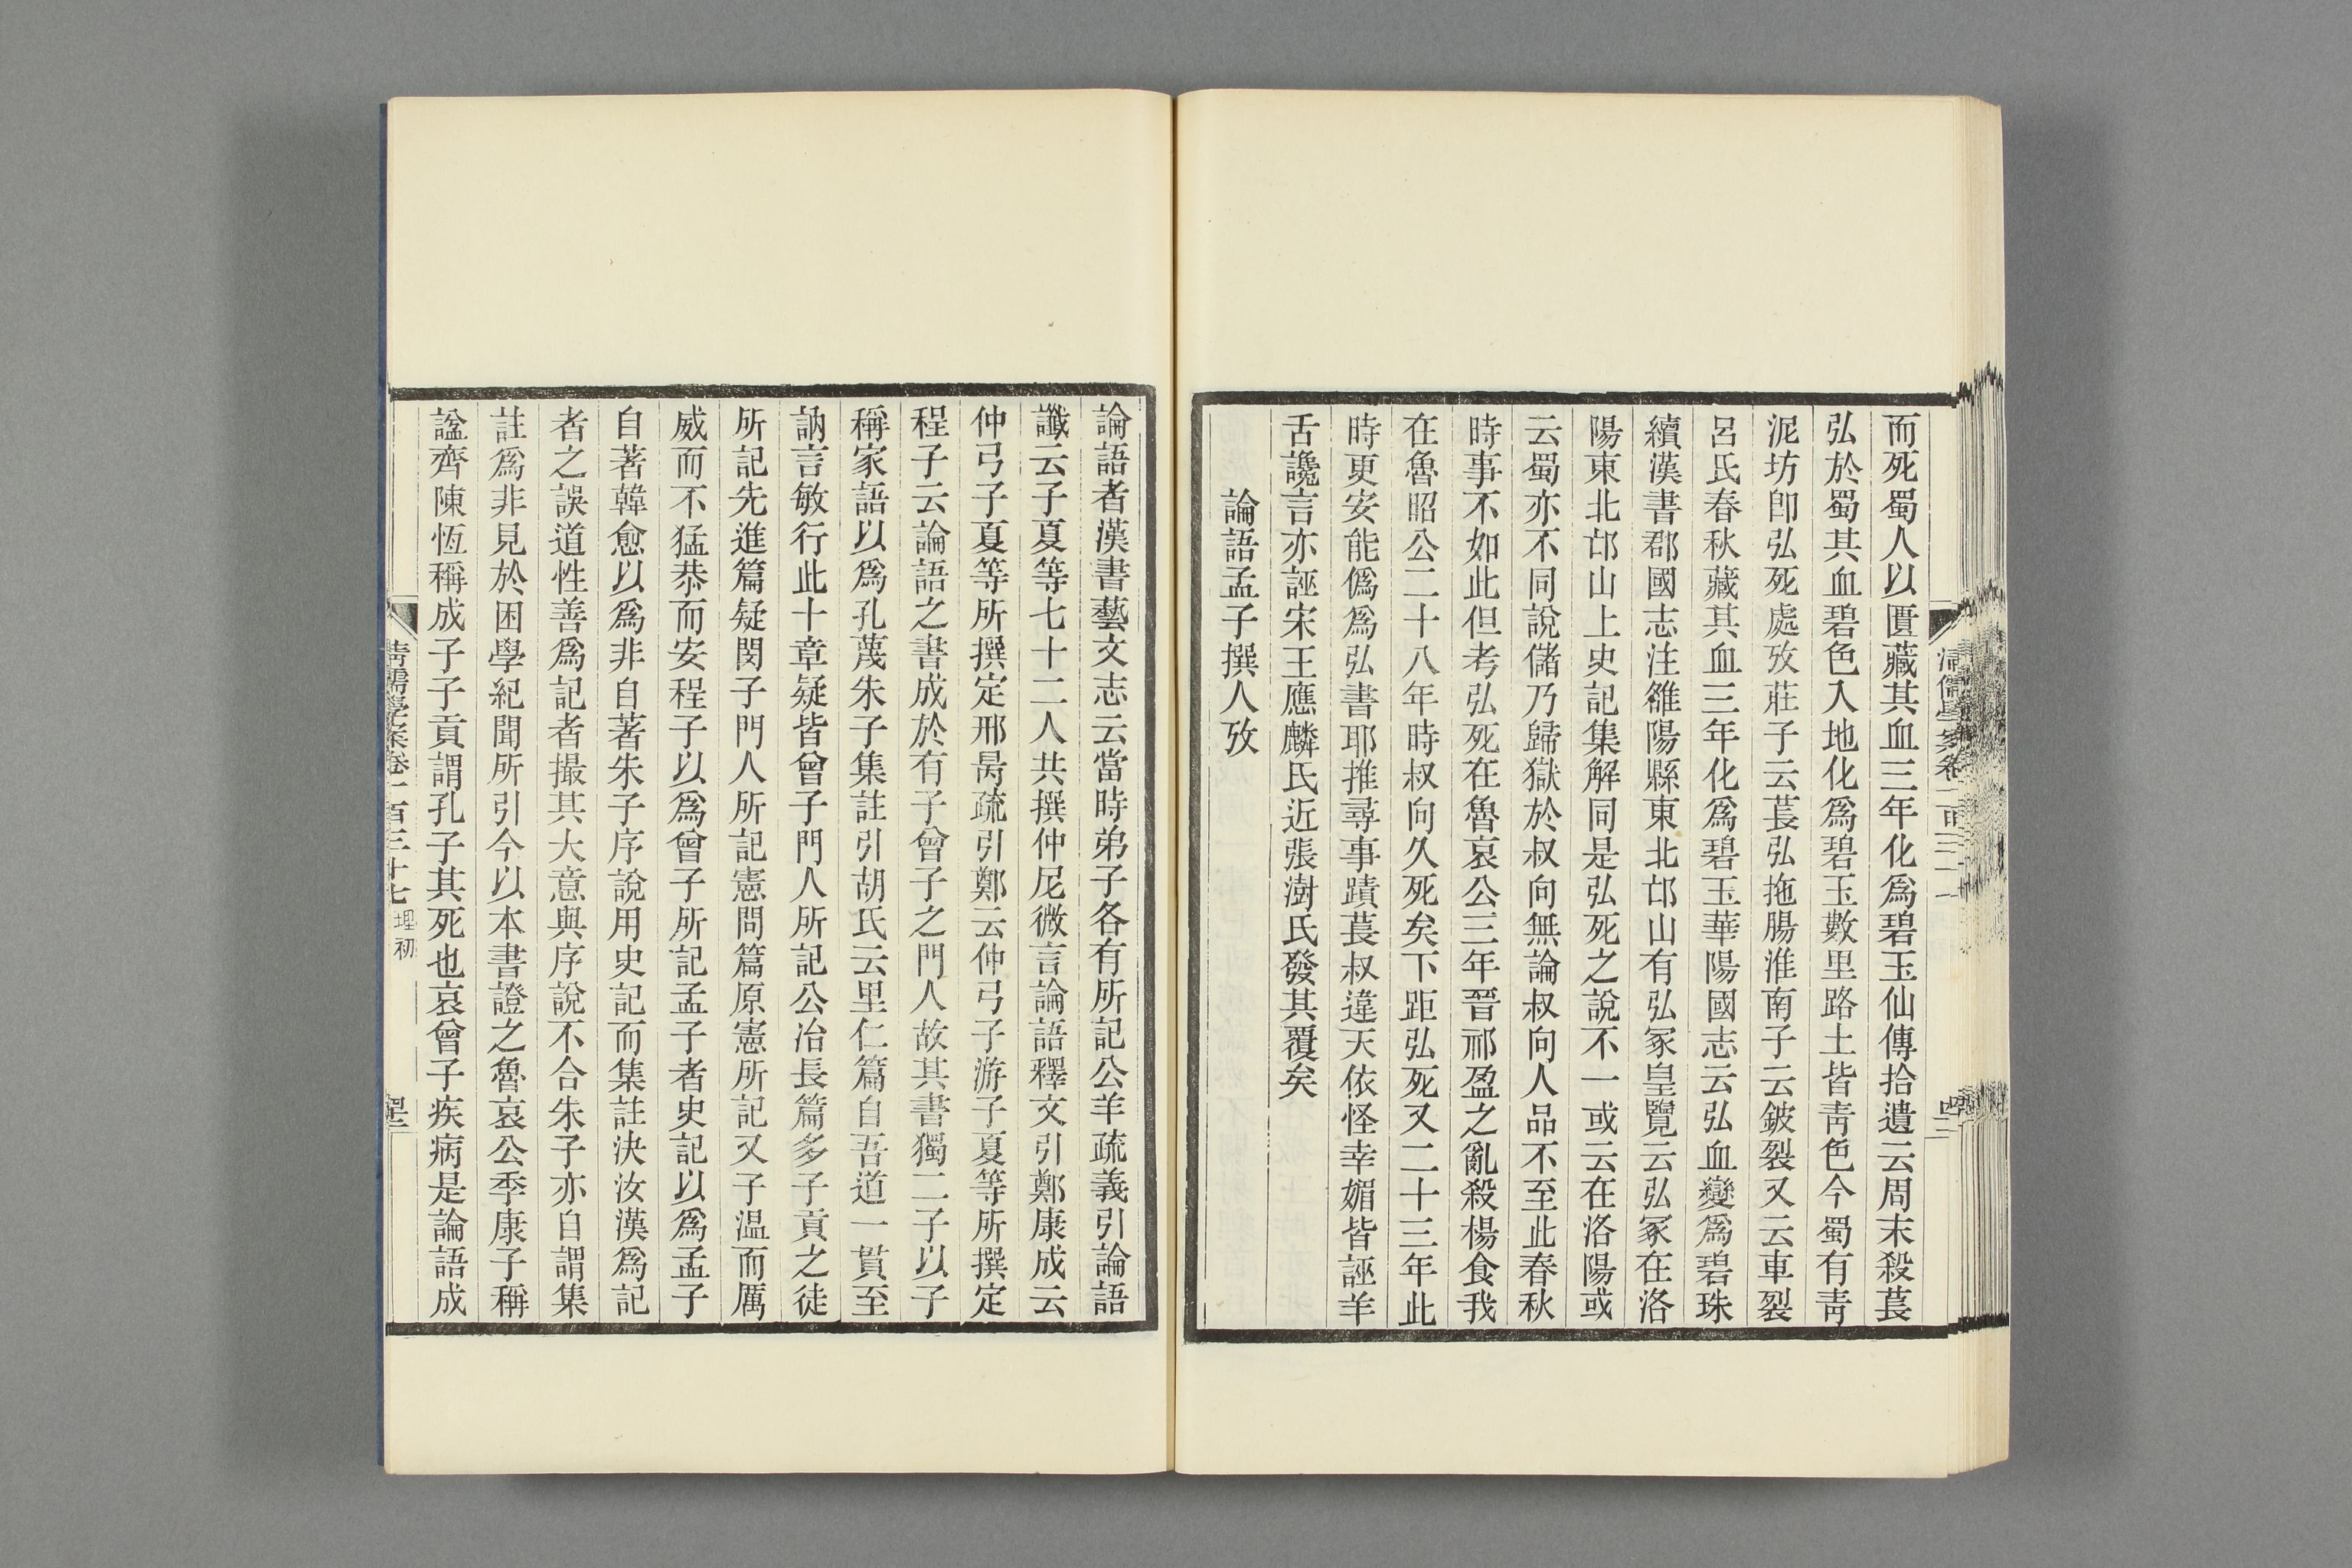 而死蜀人以匱藏其血三年化爲碧玉仙傳拾遺云周末殺萇
弘於蜀其血碧色入地化爲碧玉數里路土皆靑色今蜀有靑
泥坊卽弘死處攷莊子云萇弘拖腸淮南子云鈹裂又云車裂
呂氏春秋藏其血三年化爲碧玉華陽國志云弘血變爲碧珠
續漢書郡國志注雒陽縣東北邙山有弘冢皇覽云弘冢在洛
陽東北邙山上史記集解同是弘死之說不一或云在洛陽或
云蜀亦不同說儲乃歸獄於叔向無論叔向人品不至此春秋
時事不如此但考弘死在魯哀公三年晉祁盈之亂殺楊食我
在魯昭公二十八年時叔向久死矣下距弘死又二十三年此
時更安能僞爲弘書耶推尋事蹟萇叔違天依怪幸媚皆誣羊
舌讒言亦誣宋王應麟氏近張澍氏發其覆矣
論語孟子撰人攷
論語者漢書藝文志云當時弟子各有所記公羊疏義引論語
讖云子夏等七十二人共撰仲尼微言論語釋文引鄭康成云
仲弓子夏等所撰定邢昺疏引鄭云仲弓子游子夏等所撰定
程子云論語之書成於有子曾子之門人故其書獨二子以子
稱家語以爲孔蔑朱子集註引胡氏云里仁篇自吾道一貫至
訥言敏行此十章疑皆曾子門人所記公冶長篇多子貢之徒
所記先進篇疑閔子門人所記憲問篇原憲所記又子温而厲
威而不猛恭而安程子以爲曾子所記孟子者史記以爲孟子
自著韓愈以爲非自著朱子序說用史記而集註決汝漢爲記
者之誤道性善爲記者撮其大意與序說不合朱子亦自謂集
註爲非見於困學紀聞所引今以本書證之魯哀公季康子稱
諡齊陳恆稱成子子貢謂孔子其死也哀曾子疾病是論語成
清儒學案卷一百三十七 理初